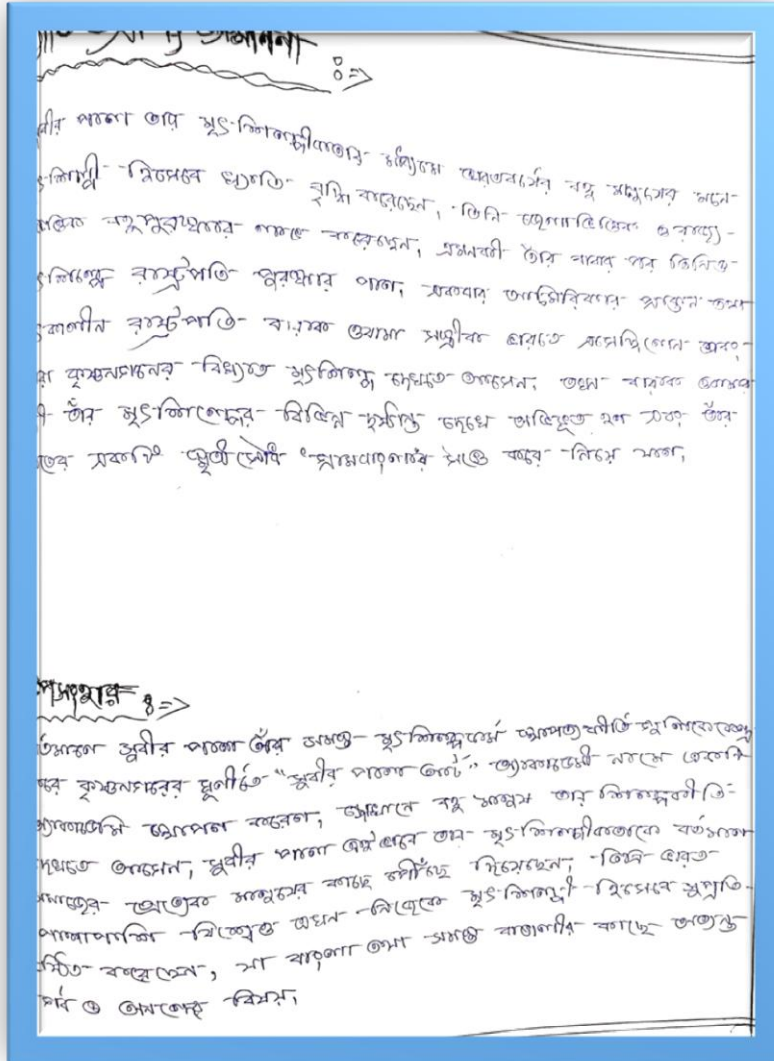 সুবীর পাল তার মৃৎশিল্পীকতার মাধ্যমে ভারতবর্ষের বহু মানুষের মনে
শিল্পী হিসেবে খ্যাতি বৃদ্ধি করেছেন, তিনি জেলাভিত্তিক ও রাজ্য-
ভিত্তিক বহুপুরস্কার লাভ করেছেন, এমনকী তাঁর বাবার পর তিনিও
মৃৎশিল্পে রাষ্ট্রপতি পুরস্কার পান, একবার আমেরিকার প্রাক্তন তথা
তৎকালীন রাষ্ট্রপতি বারাক ওবামা সস্ত্রীক ভারতে এসেছিলেন এবং
কৃষ্ণনগরের বিখ্যাত মৃৎশিল্প দেখতে আসেন, তখন বারাক ওবামা
তাঁর মৃৎশিল্পের বিভিন্ন দৃষ্টান্ত দেখে অভিভূত হন এবং তাঁর
হাতের একটি স্মৃতিসৌধ "গ্রামবাংলার" সঙ্গে করে নিয়ে যান,
উপসংহার ঃ=>
বর্তমানে সুবীর পাল তাঁর সমস্ত মৃৎশিল্পকর্ম স্থাপত্যকীর্তি
করে কৃষ্ণনগরের ঘূর্ণীতে "সুবীর পালস আর্ট" অ্যাকাডেমী নামে একটি
অ্যাকাডেমি স্থাপন করেন, যেখানে বহু মানুষ তার শিল্পকীর্তি-
দেখতে আসেন, সুবীর পাল এই ভাবে তার মৃৎশিল্পীকতাকে বর্তমান
সমাজের প্রত্যেক মানুষের কাছে পৌঁছে দিয়েছেন, তিনি ভারত
পাশাপাশি বিশ্বেও এখন নিজেকে মৃৎশিল্পী হিসেবে সুপ্রতি-
ষ্ঠিত করেছেন, যা বাংলা তথা সমস্ত বাঙালীর কাছে অত্যন্ত
গর্ব ও আনন্দের বিষয়,